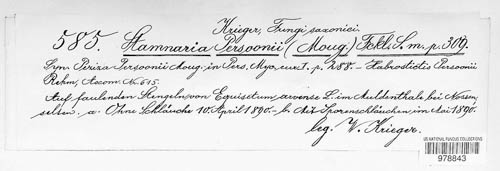 Krieger, Fungi saxonici.
585. Stamnaria Persoonii (Moug.) Fckl. S. m. p. 309.
Syn. Peziza Persoonii Moug. in Pers. Myc. eur. I. p. 288. - Habrostictis Persoonii
Rehm, Ascom. No. 615.
Auf faulenden Stengeln von Equisetum arvense L. im Muldenthale bei Nossen
selben. a. Ohne Schläuche 10. April 1890. - b. Mit Sporenschläuchen im Mai 1890.
leg. W. Krieger.
US NATIONAL FUNGUS COLLECTIONS
978843